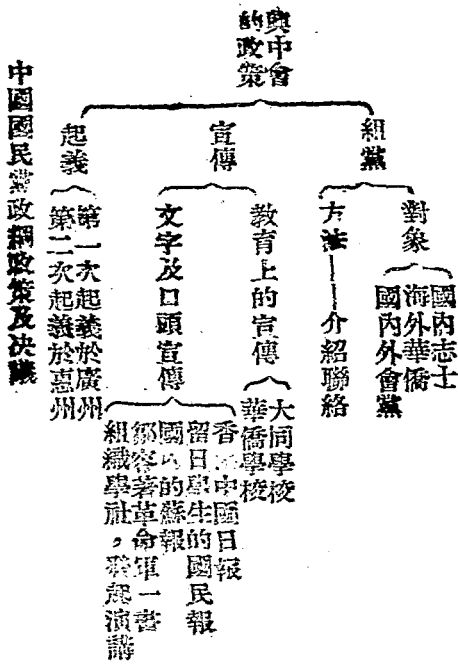 興中會
的政策
組黨
對象
國內志士
海外華僑
國內外會黨
方法——介紹聯絡
宣傳
教育上的宣傳
大同學校
華僑學校
文字及口頭宣傳
香 中國日報
留日學生的國民報
國 的蘇報
鄒容著革命軍一書
組織學社，發起演講
起義
第一次起義於廣州
第二次起義於惠州
中國國民黨政綱政策及決議